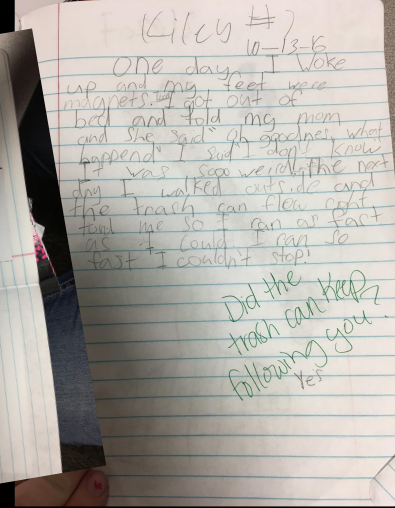 Kiley #7
10-13-15
One day I woke
up and my feet were
magnets. I got out of
bed and told my mom
and she said "oh goodnes, what
happend" I said I don't know
It was sooo weird, the next
day I walked outside and
the trash can flew right
tord me so I ran as fast
as I could I ran so
fast I couldn't stop!
Did the
trash can keep
following you?
Yes